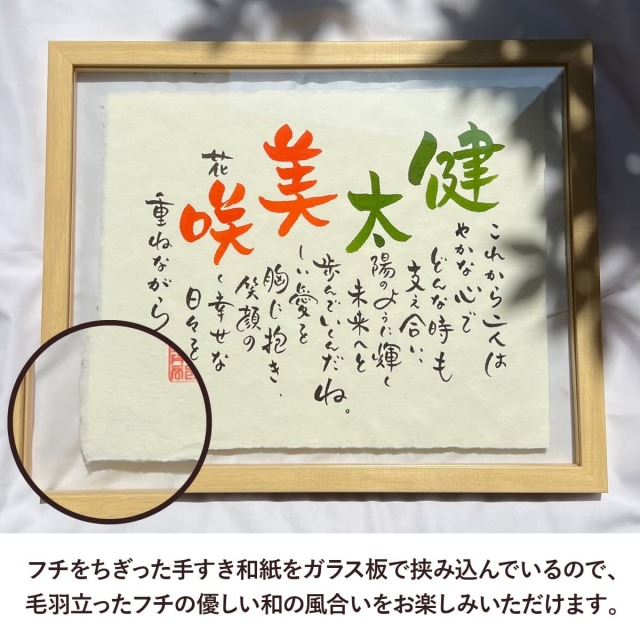 これから二人は
健やかな心で
どんな時も
支え合い
太陽のように輝く
未来へと
歩んでいくんだね。
美しい愛を
胸に抱き、
笑顔の
花咲く幸せな
日々を
重ねながら
フチをちぎった手すき和紙をガラス板で挟み込んでいるので、
毛羽立ったフチの優しい和の風合いをお楽しみいただけます。